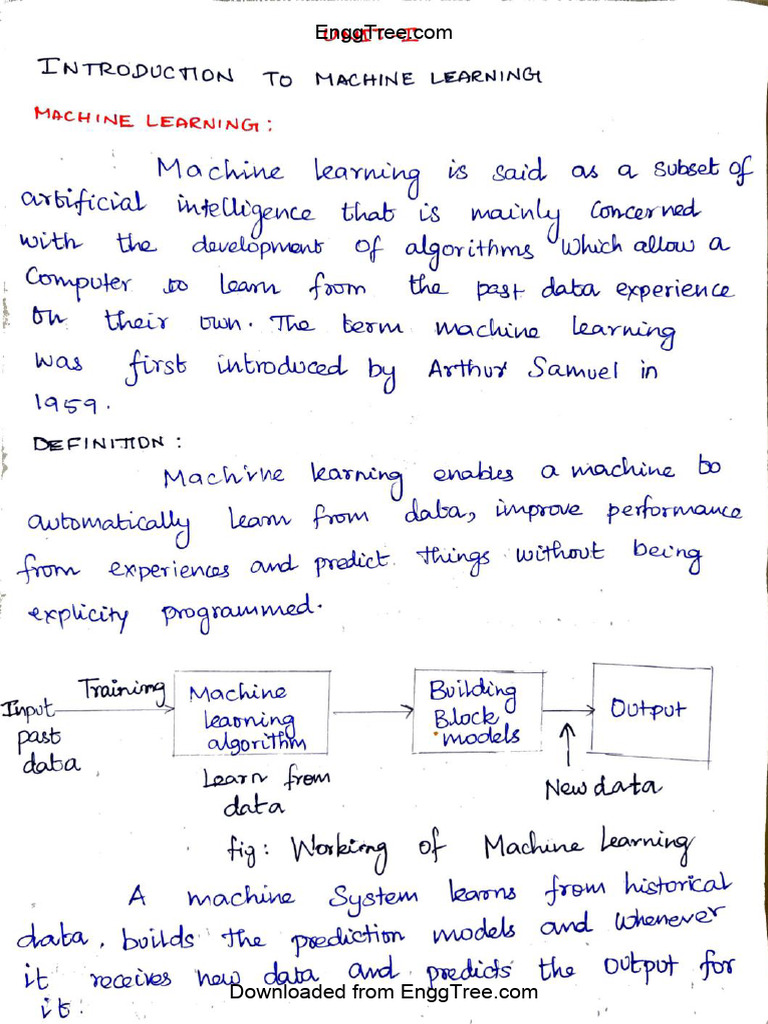 EnggTree.com
UNIT-I
INTRODUCTION TO MACHINE LEARNING
MACHINE LEARNING:
Machine learning is said as a subset of
artificial intelligence that is mainly concerned
with the development of algorithms which allow a
Computer to learn from the past data experience
on their own. The term machine learning
was first introduced by Arthur Samuel in
1959.
DEFINITION:
Machine learning enables a machine to
automatically learn from data, improve performance
from experiences and predict things without being
explicity programmed.
Training
Input
past
data
Machine
learning
algorithm
Learn from
data
Building
Block
models
Output
New data
fig: Working of Machine Learning
A machine System learns from historical
data, builds the prediction models and whenever
it receives new data and predicts the output for
it.
Downloaded from EnggTree.com